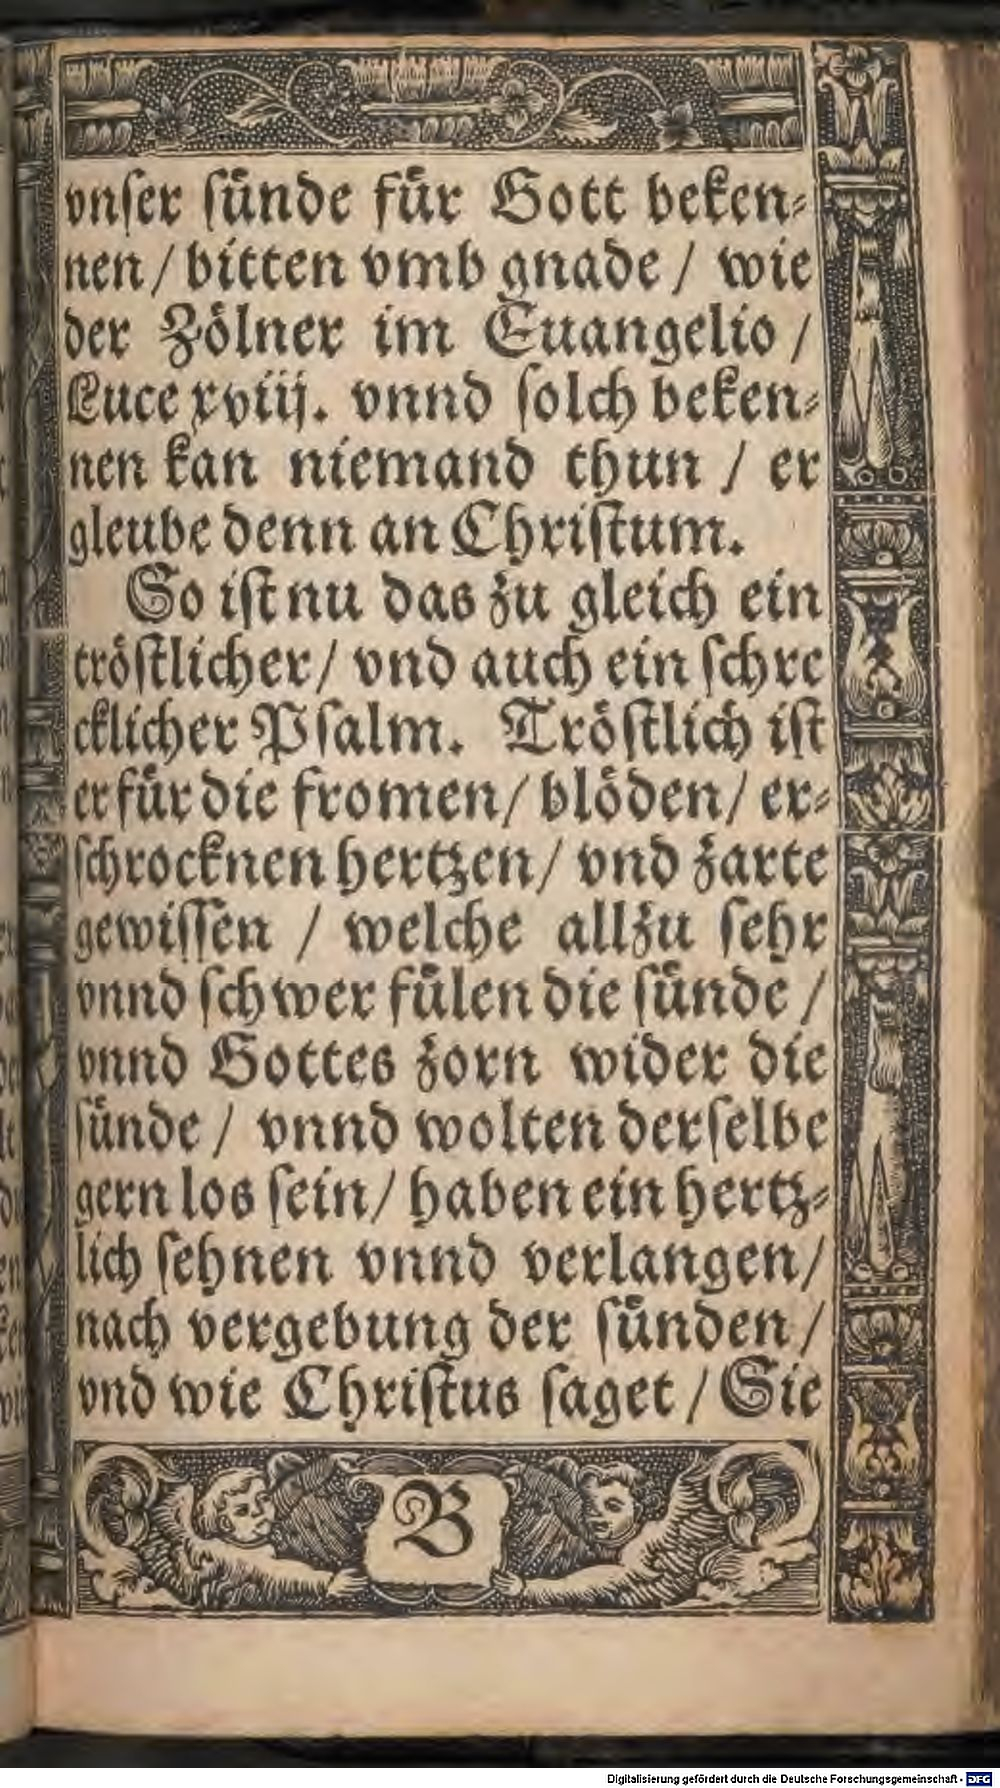 vnſer ſuͤnde fuͤr Gott beken⸗
nen / bitten vmb gnade / wie
der Zoͤlner im Euangelio /
Luce xviij. vnnd ſolch beken⸗
nen kan niemand thun / er
gleube denn an Chriſtum.
So iſt nu das zu gleich ein
troͤſtlicher / vnd auch ein ſchre
cklicher Pſalm. Troͤſtlich iſt
er fuͤr die fromen / bloͤden / er⸗
ſchrocknen hertzen / vnd zarte
gewiſſen / welche allzu ſehr
vnnd ſchwer fuͤlen die ſuͤnde /
vnnd Gottes zorn wider die
ſuͤnde / vnnd wolten derſelbe
gern los ſein / haben ein hertz⸗
lich ſehnen vnnd verlangen /
nach vergebung der ſuͤnden /
vnd wie Chriſtus ſaget / Sie
B
Digitalisierung gefördert durch die Deutsche Forschungsgemeinschaft - DFG